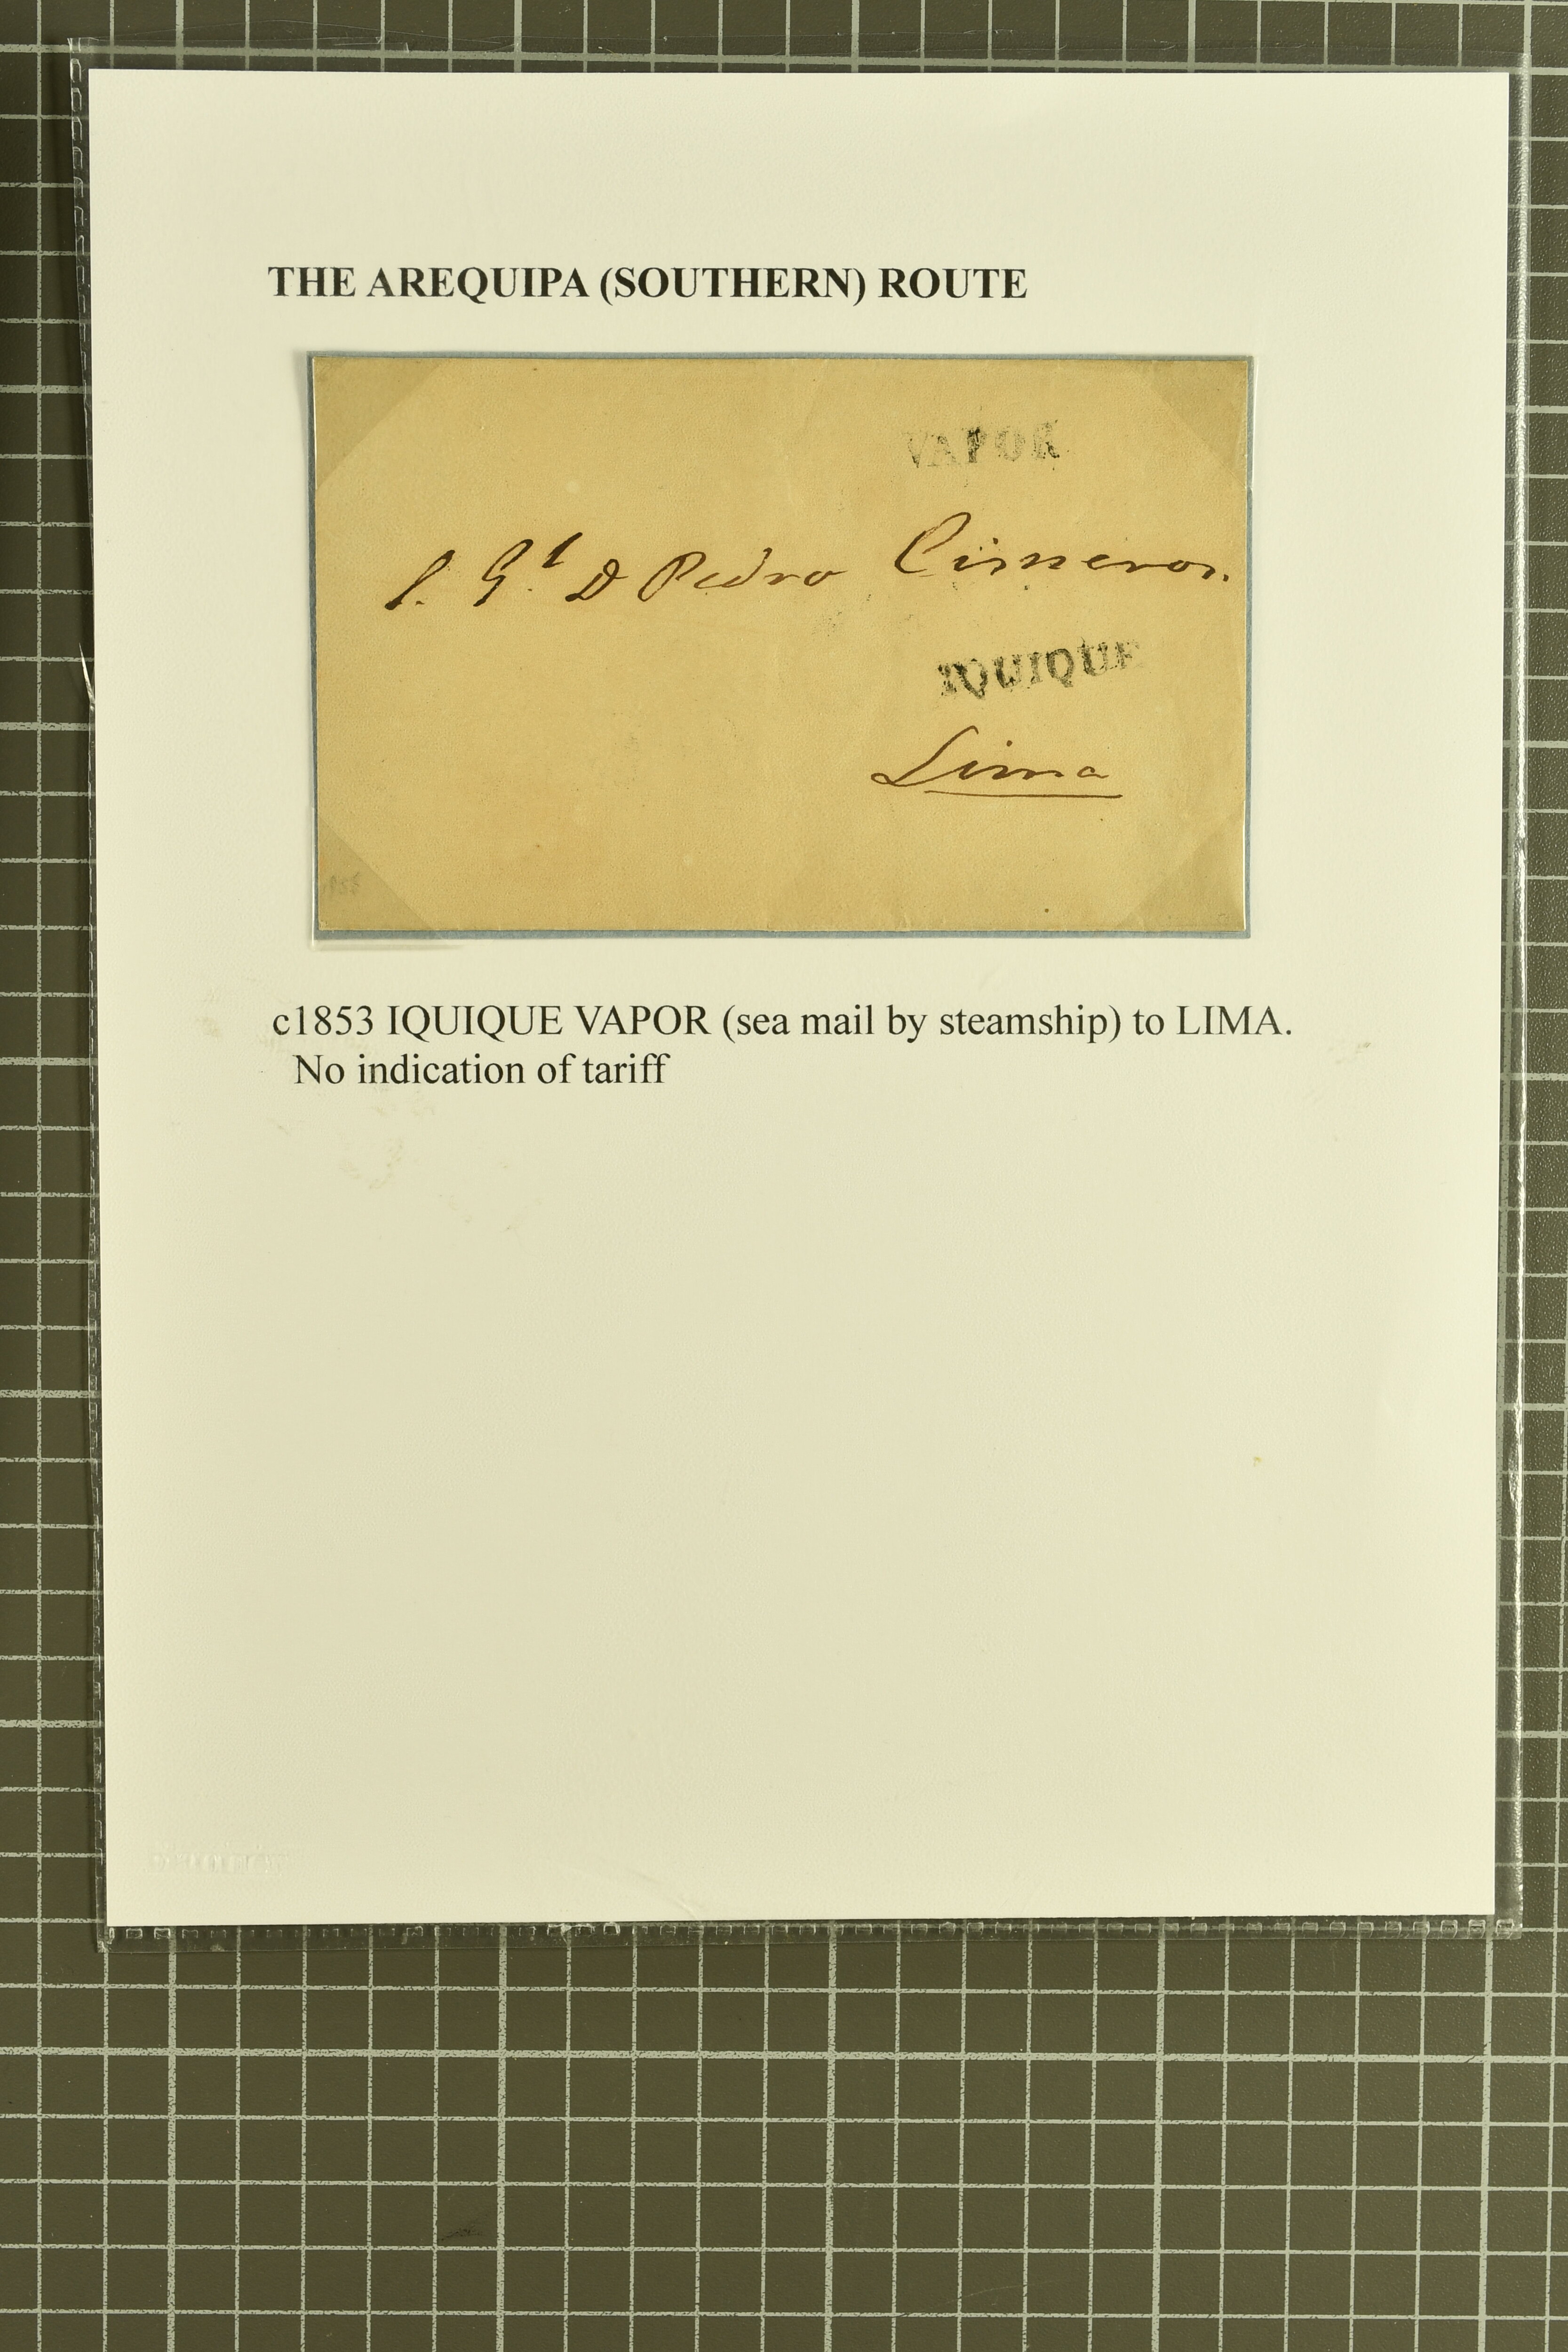 THE AREQUIPA (SOUTHERN) ROUTE
VAPOR
S. Gl. D Pedro Cisneros.
IQUIQUE
Lima
c1853 IQUIQUE VAPOR (sea mail by steamship) to LIMA.
No indication of tariff